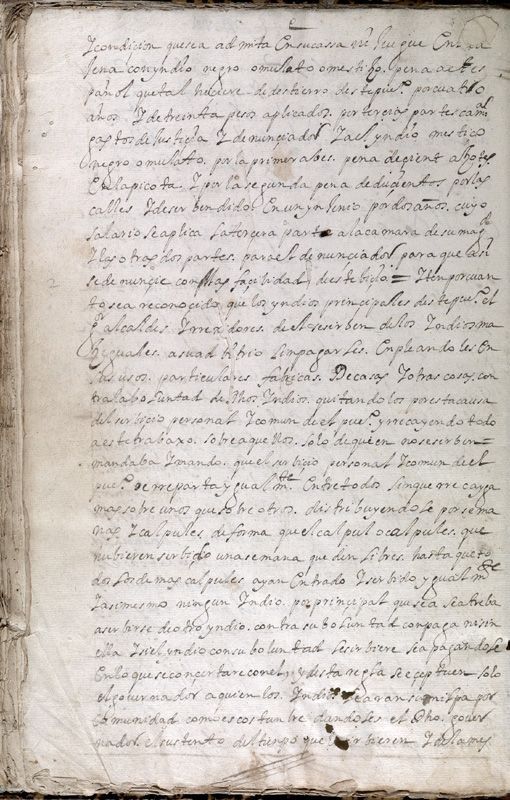 Y condicion que sea admita En su cassa ni Jue gue En
Jena con yndio negro o mulato o mestiço, pena al es
pañol que tal hiçiere de destierro deste pueo. por cuatro
años Y de treinta pesos aplicados. por terçias partes cama
gastos de Justiçia Y denunciador Y a el yndio mestico
negro o mulatto. por la primera bes. pena de çient açotes
En la picota. Y por la segunda pena de duçientos por las
calles Y de ser bendido En un ynJenio por dos años. cuyo
salario se aplica la tercera parte a la camara de su magd
Y las otras dos partes. para el denunciador para que assi
se denunçie con mas façilidad deste biçio = Yten por cuan
to sea reconocido que los yndios principales deste pueo. el
go alcaldes. Y rrexidores. del se sirben de los Indios ma
çeguales. a su adbitrio sin pagarles. Enpleandoles En
sus usos. particulares fabricas. De casas Y otras cosas. con
tra la boluntad de dhos Indios. quitandolos por esta causa
del serbicio personal Y comun de el pueo. y rrecayendo todo
a este trabaxo. sobre aquellos. solo de quien no se sirben =
mandaba Y mando. que el serbicio personal Y comun de el
pueo. se rreparta ygualmte. Entre todos sin que rrecayga
mas sobre unos que sobre otros, distribuyendose por sema
nas Y calpules, de forma que el calpul o calpules. que
hubieren serbido una semana queden libres. hasta que to
dos los demas calpules ayan Entrado Y serbido ygualmte
Y asimesmo ningun Indio. por principal que sea se atreba
a serbirse de otro yndio. contra su boluntad con paga ni sin
ella Y si el yndio con su boluntad le sirbiere sea pagandole
En lo que se concertare con el y desta regla se eceptuen solo
el governador a quien los Indios haran su milpa por
comunidad como es costunbre dandoles el dho. gover
nador. el sustento del tienpo que le sirbieren Y de la mes